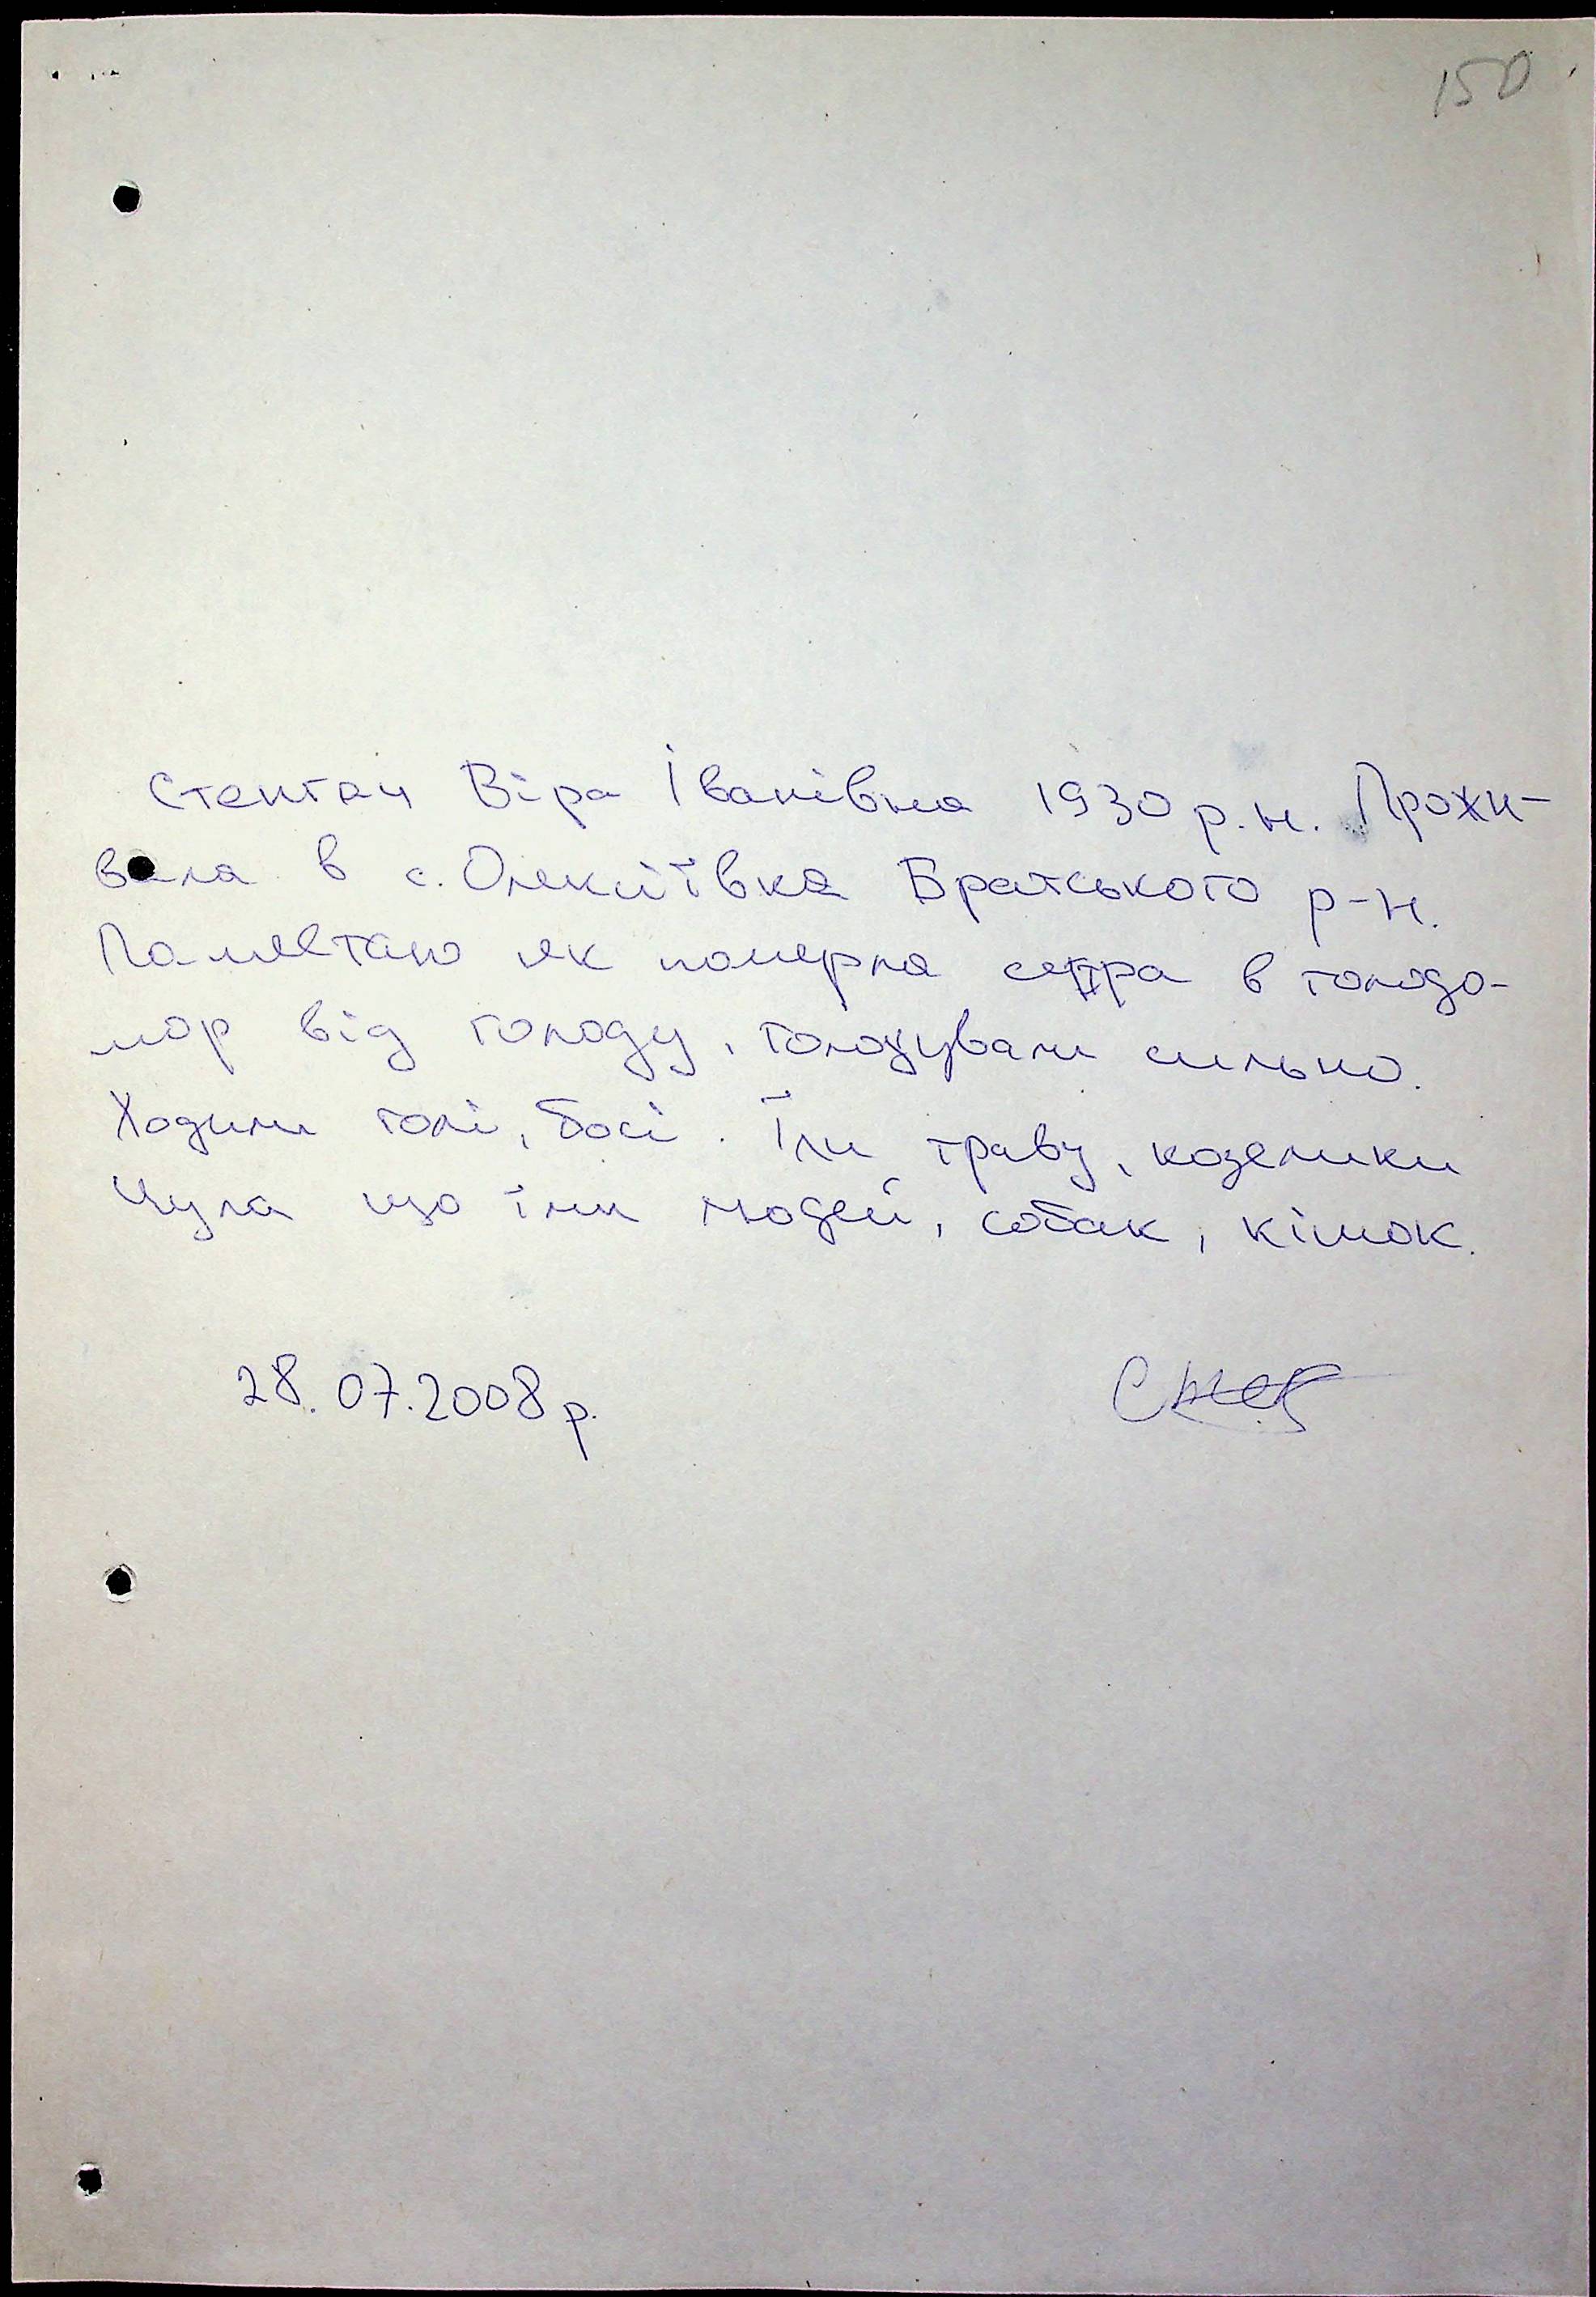 150
Стенгач Віра Іванівна 1930 р.н. Прожи-
вала в с. Олексіївка Братського р-н.
Памятаю як померла сестра в голодо-
мор від голоду, голодували сильно.
Ходили голі, босі. Їли траву, козелики
Чула що їли людей, собак, кішок.
28.07.2008р.